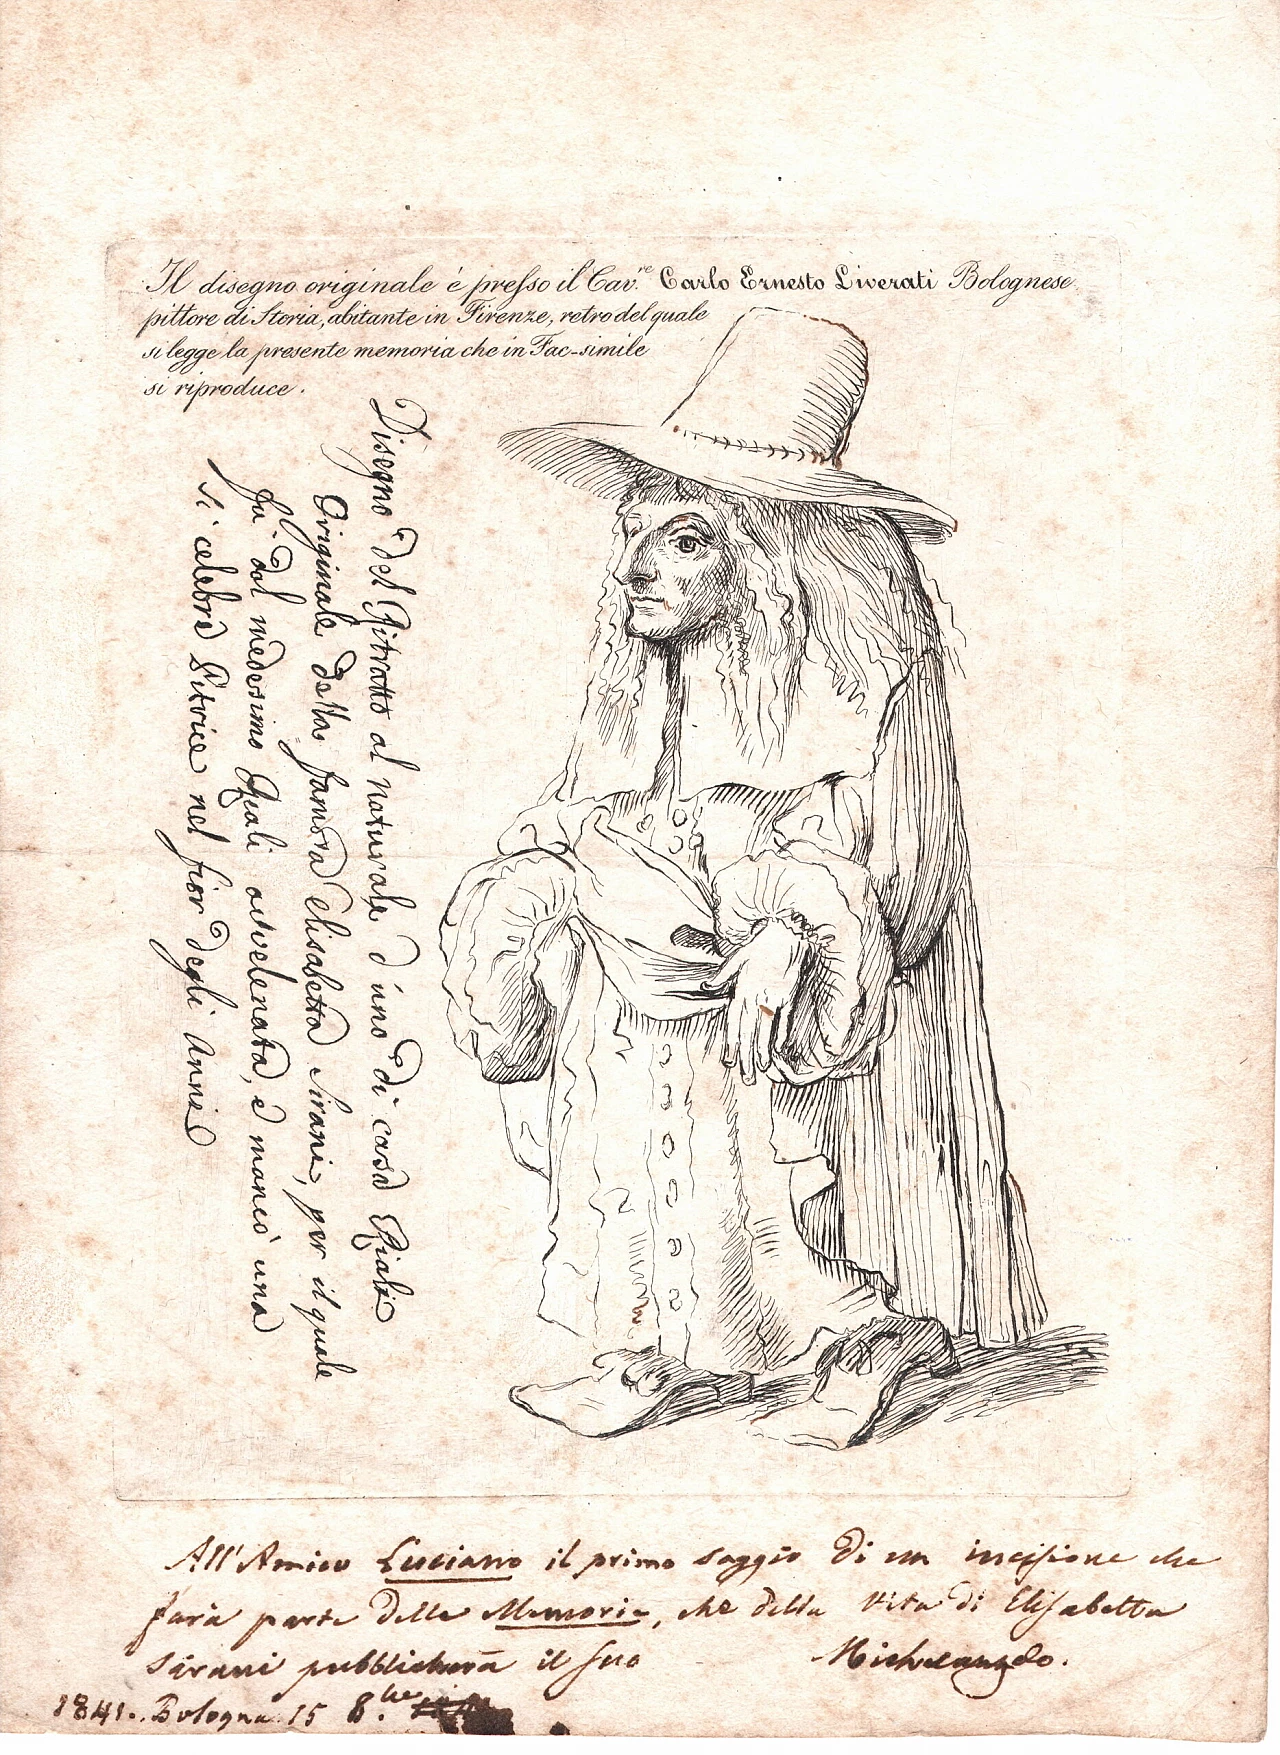 Il disegno originale è presso il Cav.re Carlo Ernesto Liverati Bolognese
pittore di Storia, abitante in Firenze, retro del quale
si legge la presente memoria che in Fac-simile
si riproduce.
Disegno del Ritratto al naturale d'uno di casa Riali
Originale della famosa Elisabetta Sirani, per il quale
fù dal medesimo Riali avvelenata, e mancò una
si celebre Pitrice nel fior degli Anni
All'Amico Luciano il primo saggio di un incisione che
farà parte delle Memorie, che della Vita di Elisabetta
Sirani pubblicherà il suo Michelangelo.
1841. Bologna 15 8.bre